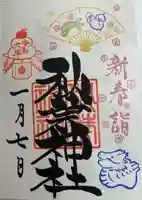 新春詣
秋葉神社
一月七日